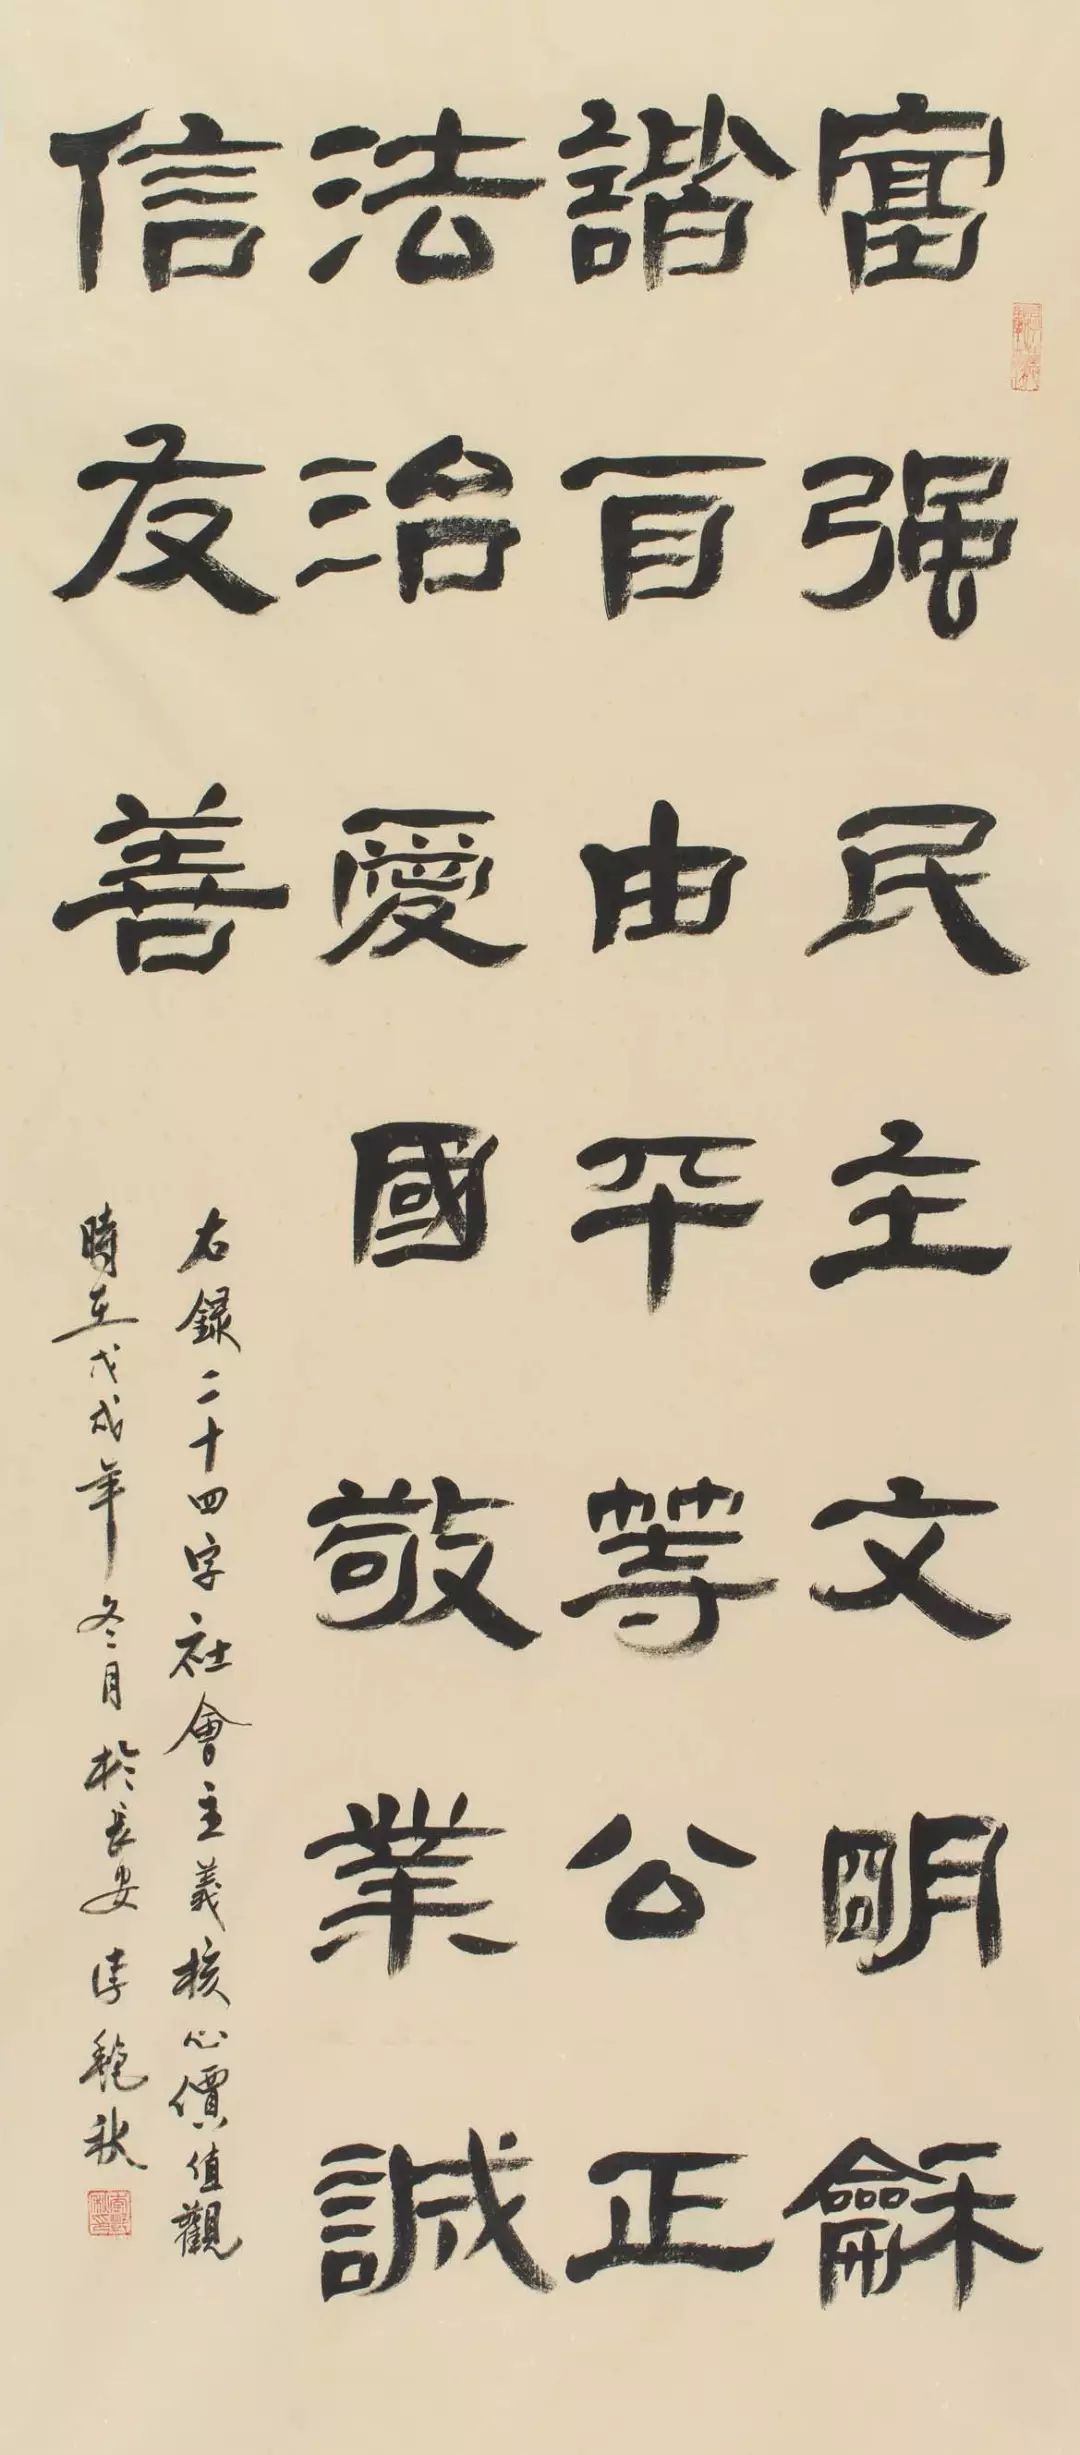 富强民主文明龢
諧自由平等公正
法治愛國敬業誠
信友善
右録二十四字社會主義核心價值觀
時在戊戌年冬月於長安李秋